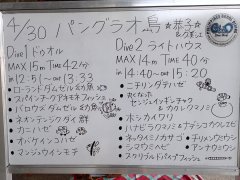 4/30 パングラオ島 ☆恭子☆
Dive 1 ドゥオル
MAX 15m TIME 42分
in 12:51 〜 out 13:33
・ローランドダムゼル幼魚
・スパインチークアネモネフィッシュ
・バロウズダムゼル幼魚
・ネオンテンジクダイ群
・カニハゼ
・オドケインコハゼ
・マンジュウイシモチ
Dive 2 ライトハウス
MAX 14m TIME 40分
in 14:40 〜 out 15:20
・ニチリンダテハゼ
センジュイソギンチャク
& カクレクマノミ
・ホシカイワリ
・ハナビラクマノミ & ナデシコカクレエビ
・キッカイソ
・シマウミヘビ
・アンナウミウシ
・スクリブルドパイプフィッシュ